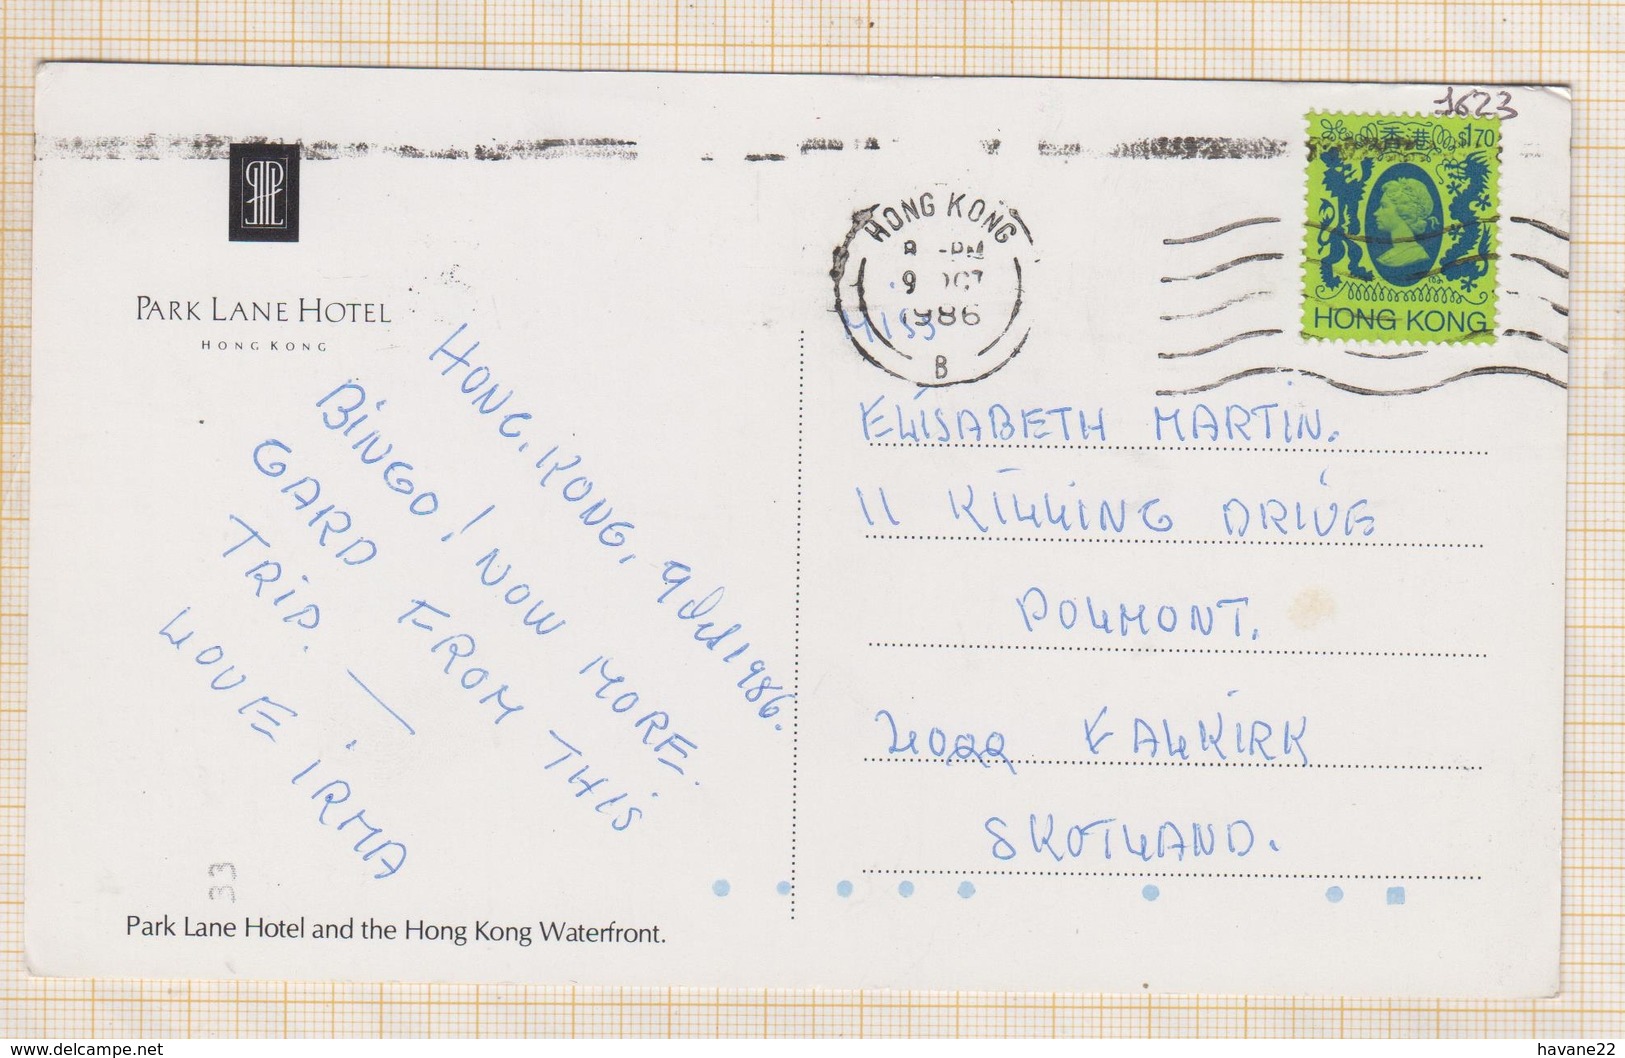 1623
香港 $1.70
HONG KONG
HONG KONG
8 -PM
9 OCT
1986
B
PARK LANE HOTEL
HONG KONG
HONG. KONG, 9 1986.
BINGO! NOW MORE.
GARD FROM THIS
TRIP. —
LOVE IRMA
MISS
ELISABETH MARTIN.
11 KILLING DRIVE
POLMONT.
FALKIRK
SKOTLAND.
33
Park Lane Hotel and the Hong Kong Waterfront.
www.delcampe.net
havane22